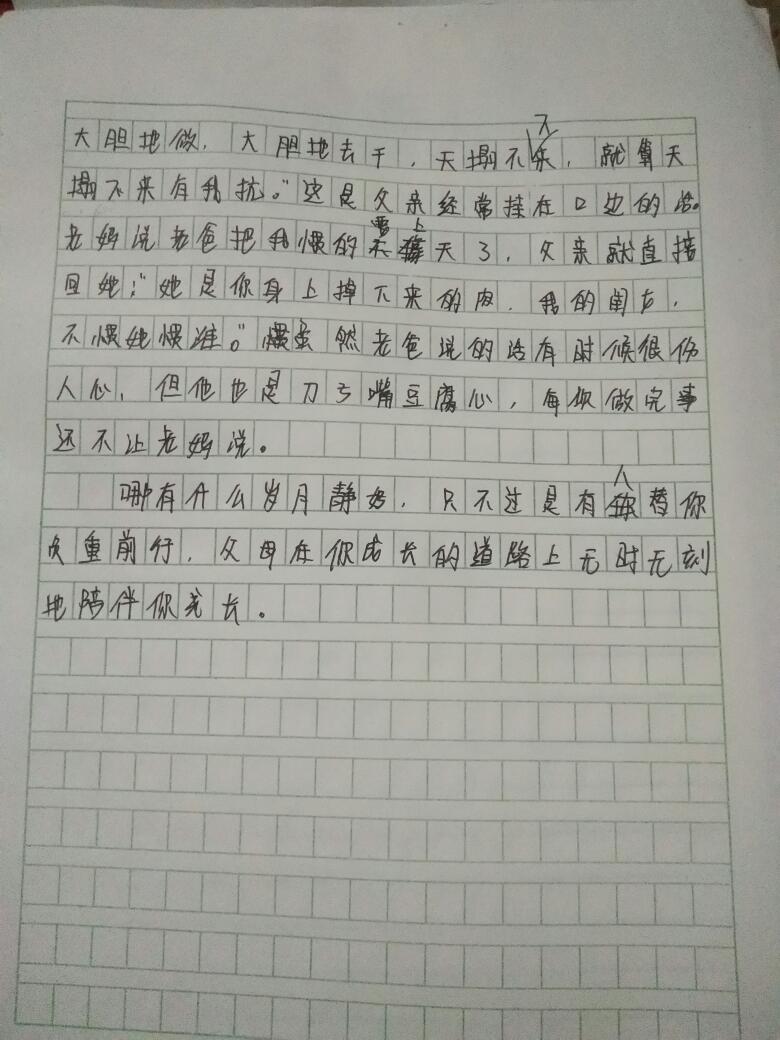 大胆地做，大胆地去干，天塌不下来，就算天
塌不来有我扛。"这是父亲经常挂在口边的话。
老妈说老爸把我惯的要上天了，父亲就直接
回她："她是你身上掉下来的肉，我的闺女，
不惯她惯谁。"虽然老爸说的话有时候很伤
人心，但他也是刀子嘴豆腐心，每次做完事
还不让老妈说。
哪有什么岁月静好，只不过是有人替你
负重前行，父母在你成长的道路上无时无刻
地陪伴你成长。